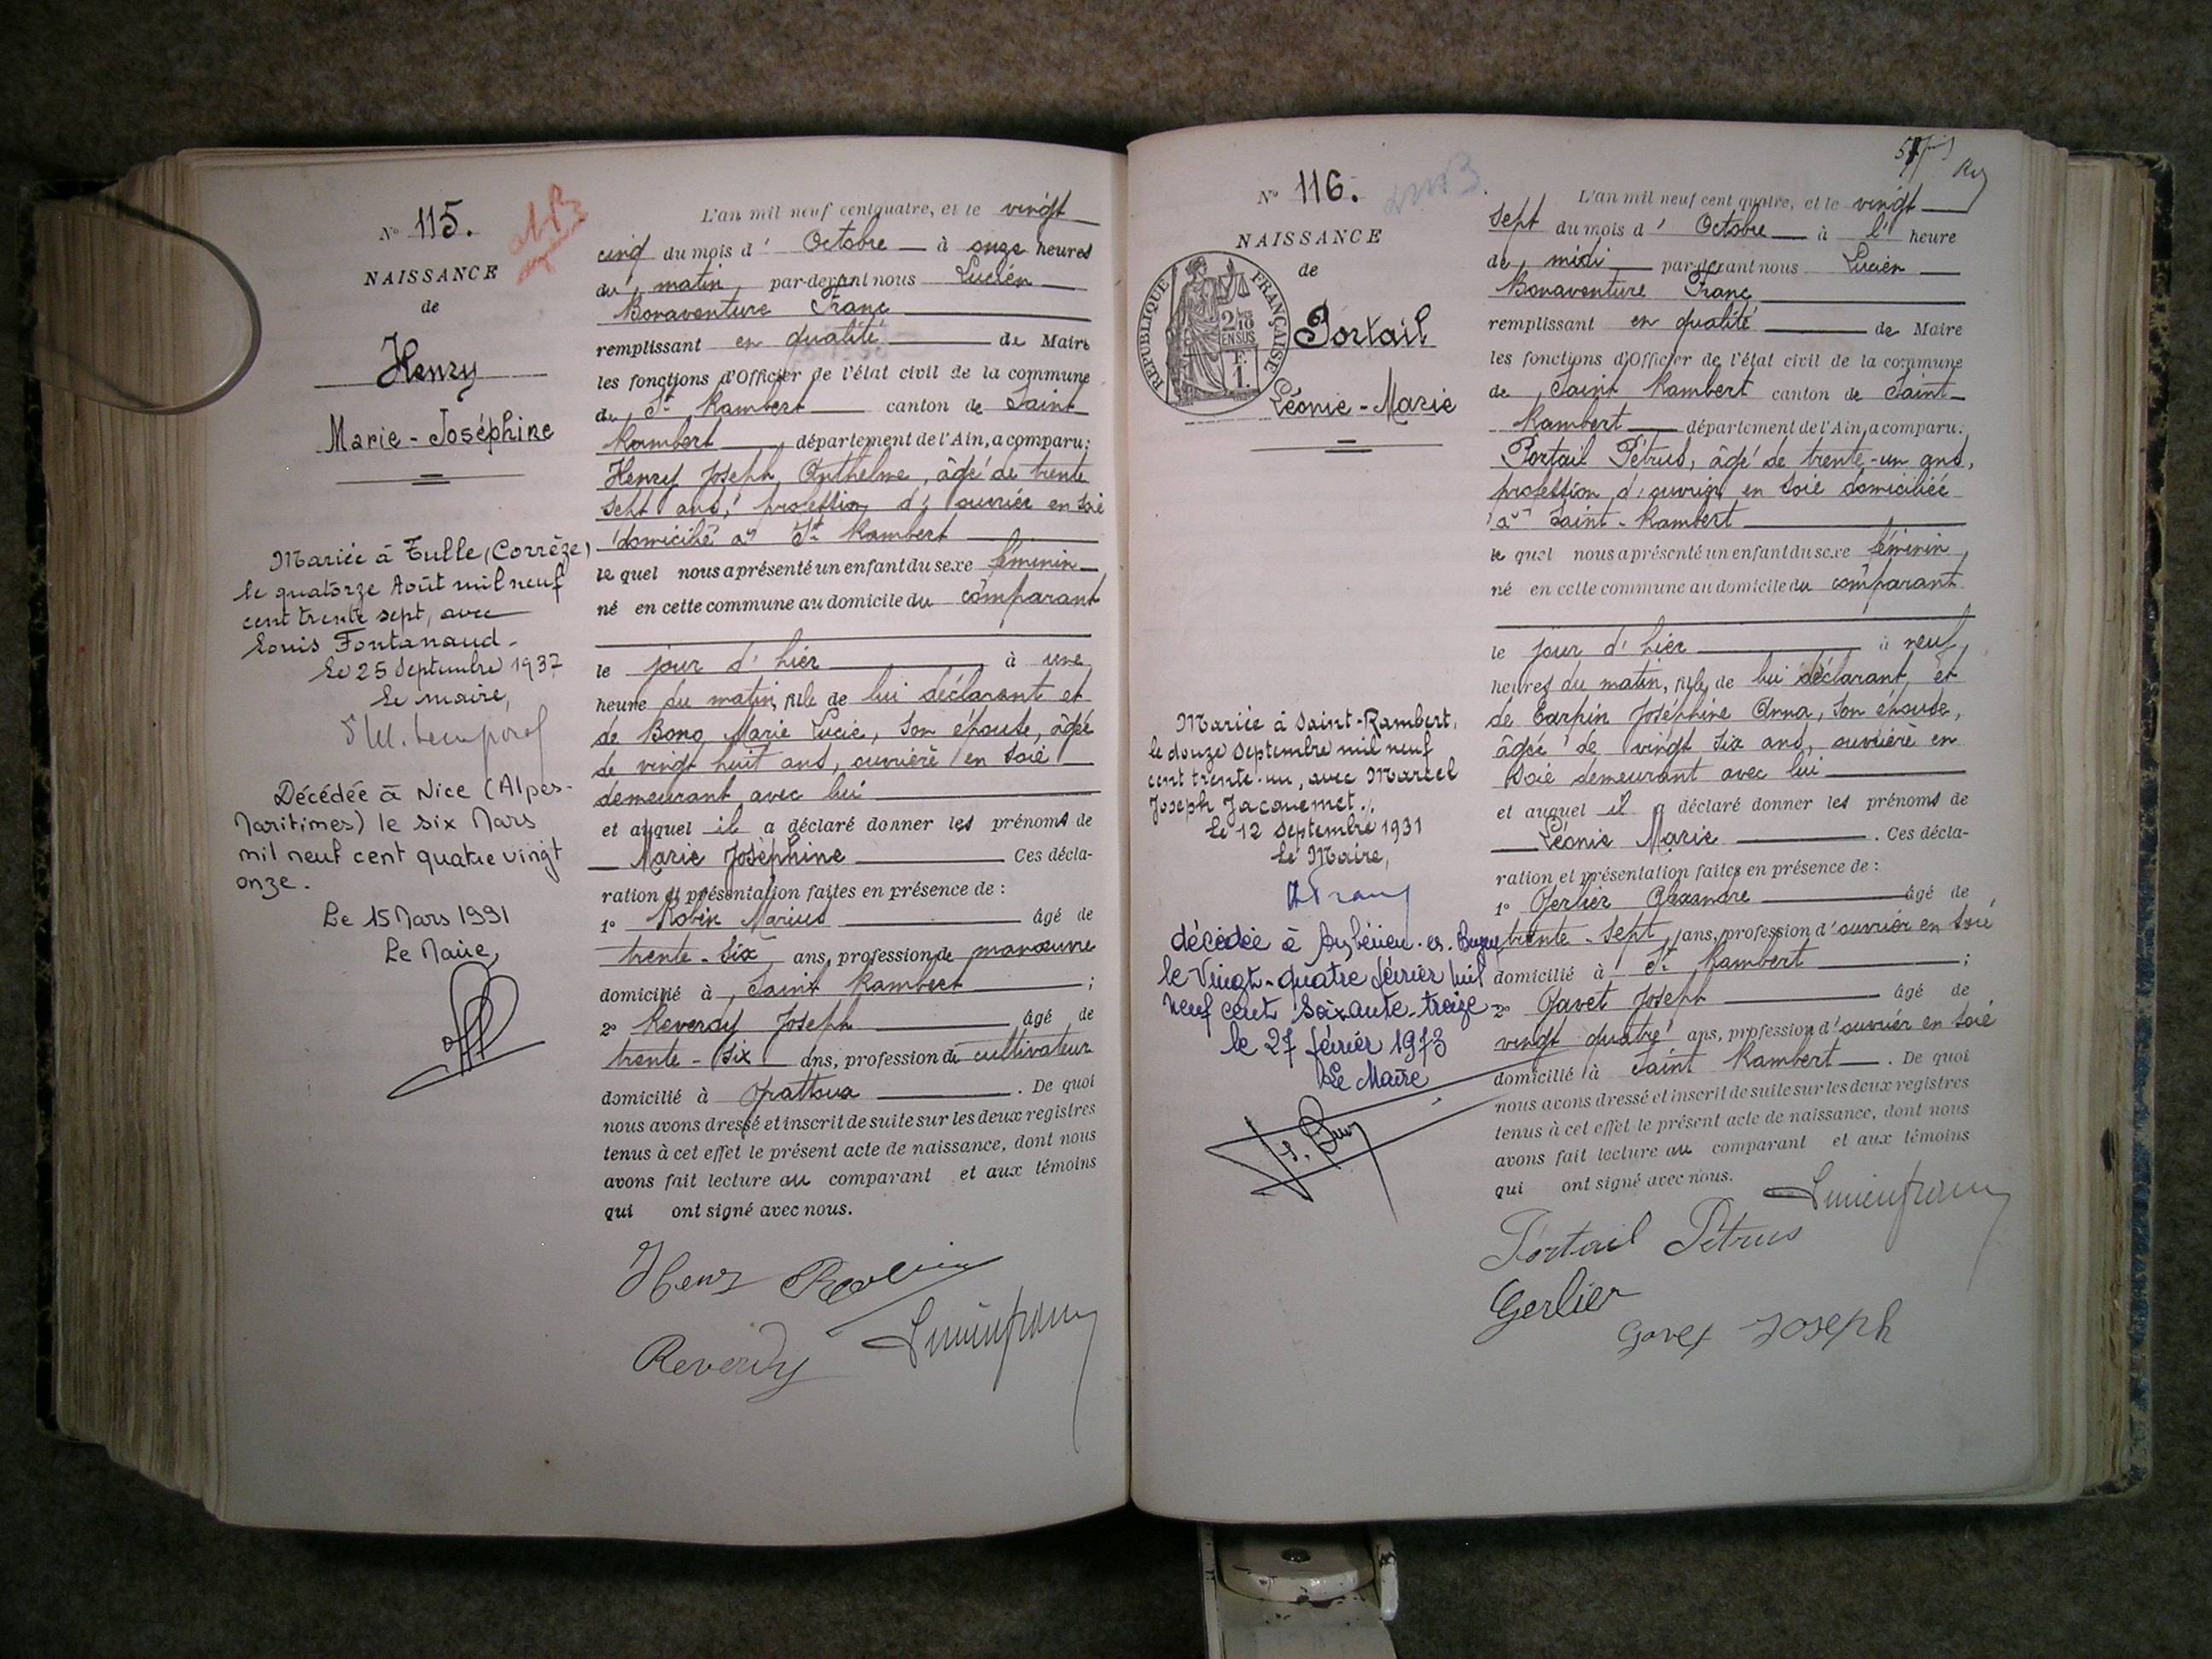 N° 115.
NAISSANCE
de
Henry
Marie-Joséphine
Mariée à Tulle (Corrèze)
le quatorze Août mil neuf
cent trente sept, avec
Louis Fontanaud.
Le 25 Septembre 1937
Le maire,
Décédée à Nice (Alpes-
Maritimes) le six Mars
mil neuf cent quatre vingt
onze.
Le 15 Mars 1991
Le Maire,
L'an mil neuf cent quatre, et le vingt
cinq du mois d' Octobre à onze heures
du matin par-devant nous Lucien
Bonaventure Franc
remplissant en qualité de Maire
les fonctions d'Officier de l'état civil de la commune
de St Rambert canton de Saint
Rambert département de l'Ain, a comparu:
Henry Joseph Anthelme, âgé de trente
sept ans, profession d' ouvrier en soie
domicilié à St Rambert
le quel nous a présenté un enfant du sexe féminin
né en cette commune au domicile du comparant
le jour d' hier à une
heure du matin, fille de lui déclarant et
de Bono Marie Lucie, son épouse, âgée
de vingt huit ans, ouvrière en soie
demeurant avec lui
et auquel il a déclaré donner les prénoms de
Marie Joséphine Ces décla-
ration et présentation faites en présence de :
1° Robin Marius âgé de
trente-six ans, profession de manœuvre
domicilié à Saint Rambert ;
2° Reverdy Joseph âgé de
trente-six ans, profession de cultivateur
domicilié à . De quoi
nous avons dressé et inscrit de suite sur les deux registres
tenus à cet effet le présent acte de naissance, dont nous
avons fait lecture au comparant et aux témoins
qui ont signé avec nous.
Henry Robin
Reverdy Lucien franc
N° 116.
NAISSANCE
de
REPUBLIQUE FRANÇAISE
2/10 EN SUS
F. 1.
Portail
Léonie-Marie
Mariée à Saint-Rambert,
le douze Septembre mil neuf
cent trente-un, avec Marcel
Joseph Jacquemet.
Le 12 Septembre 1931
Le Maire,
décédée à Ambérieu-en-Bugey
le Vingt-quatre février mil
neuf cent soixante-treize
le 27 février 1973
Le Maire
L'an mil neuf cent quatre, et le vingt
sept du mois d' Octobre à l' heure
de midi par-devant nous Lucien
Bonaventure Franc
remplissant en qualité de Maire
les fonctions d'Officier de l'état civil de la commune
de Saint Rambert canton de Saint-
Rambert département de l'Ain, a comparu:
Portail Pétrus, âgé de trente-un ans,
profession d'ouvrier en soie domiciliée
à Saint-Rambert
le quel nous a présenté un enfant du sexe féminin
né en cette commune au domicile du comparant
le jour d' hier à neuf
heures du matin, fille de lui déclarant et
de Carpin Joséphine Anna, son épouse,
âgée de vingt six ans, ouvrière en
soie demeurant avec lui
et auquel il a déclaré donner les prénoms de
Léonie Marie . Ces décla-
ration et présentation faites en présence de :
1° Gerlier Alexandre âgé de
trente-sept ans, profession d'ouvrier en soie
domicilié à St Rambert ;
2° Gavet Joseph âgé de
vingt quatre ans, profession d'ouvrier en soie
domicilié à Saint Rambert . De quoi
nous avons dressé et inscrit de suite sur les deux registres
tenus à cet effet le présent acte de naissance, dont nous
avons fait lecture au comparant et aux témoins
qui ont signé avec nous. Lucien franc
Portail Pétrus
Gerlier
Gavet Joseph